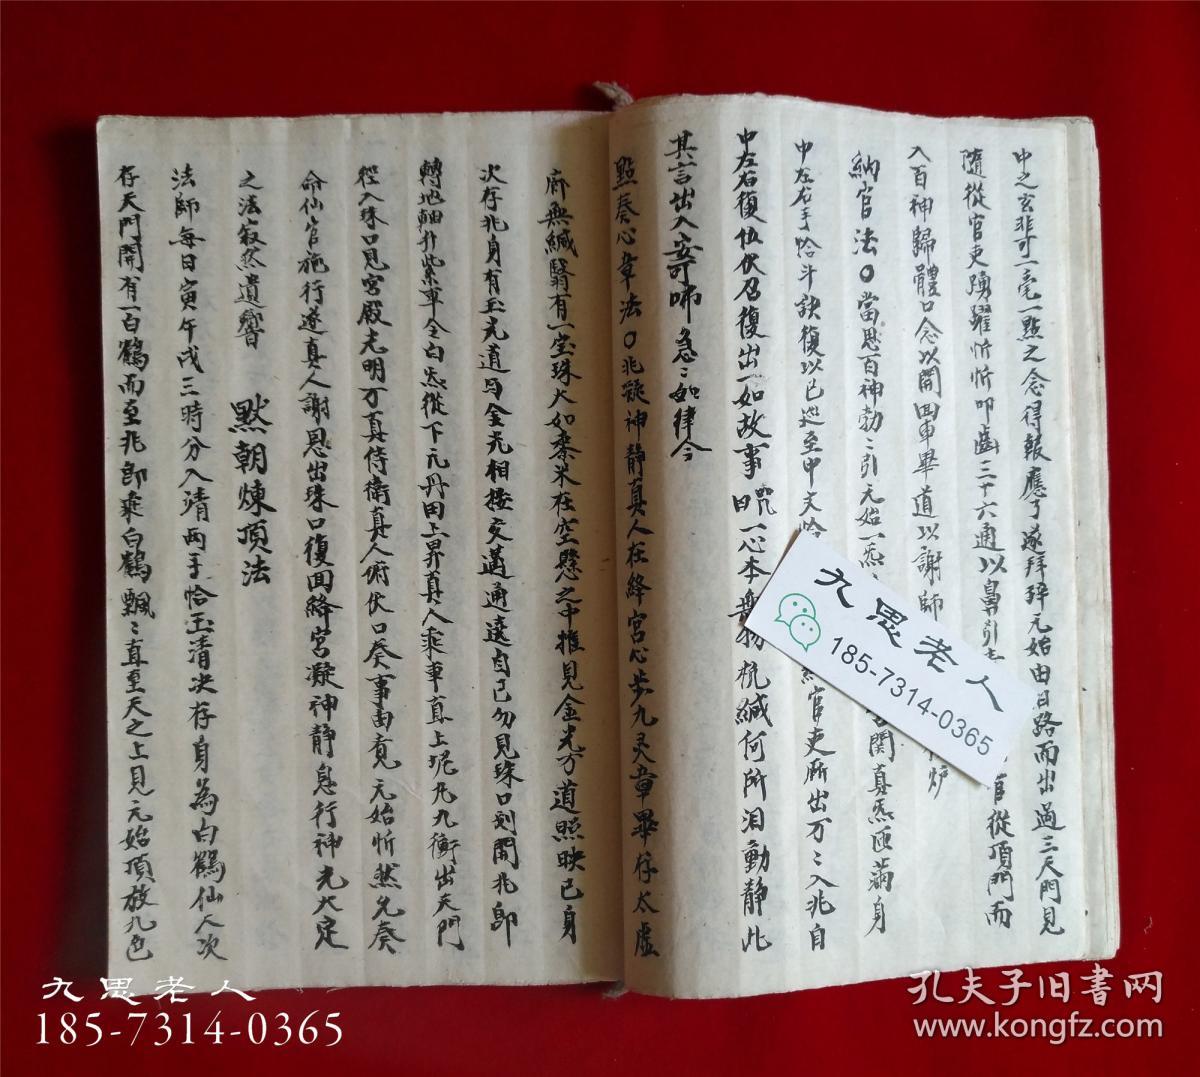 中之玄非可一毫一點之念得報應了遂拜辞元始由日路而出過三天門見
隨從官吏踴躍忻忻叩齒三十六通以鼻引 官從頂門而
入百神歸體口念以開回車畢道以謝師 炉
納官法〇當思百神勃〻引元始一炁 關真炁匝滿身
中左右手恰斗訣復以已巡至中文 官吏所出万〻入兆自
中左右復位伏召復出一如故事咒曰一心本無物杭緘何所泪動靜此
其言出入妄可啼急〻如律令
點奏心章法〇兆凝神静真人在絳宮心步九灵章畢存太虛
廓無緘翳有一宝珠大如黍米在空懸之中推見金光万道照映已身
次存兆身有玉光道与金光相接交邁通遠自己勿見珠口刻開兆卽
轉地軸升紫車全白炁從下元丹田上昇真人乘車直上坭凡九衝出天門
徑入珠口見宮殿光明万真侍衛真人俯伏口奏事由竟元始忻然允奏
命仙官施行遂真人謝恩出珠口復回絳宮凝神靜息行神光大定
之法寂然遺響
黙朝煉頂法
法師每日寅午戌三時分入靖两手恰玉清决存身為白鶴仙人次
存天門開有一白鶴而至兆卽乘白鶴飄〻直至天之上見元始頂放九色
九思老人
185-7314-0365
九思老人
185-7314-0365
孔夫子旧书网
www.kongfz.com